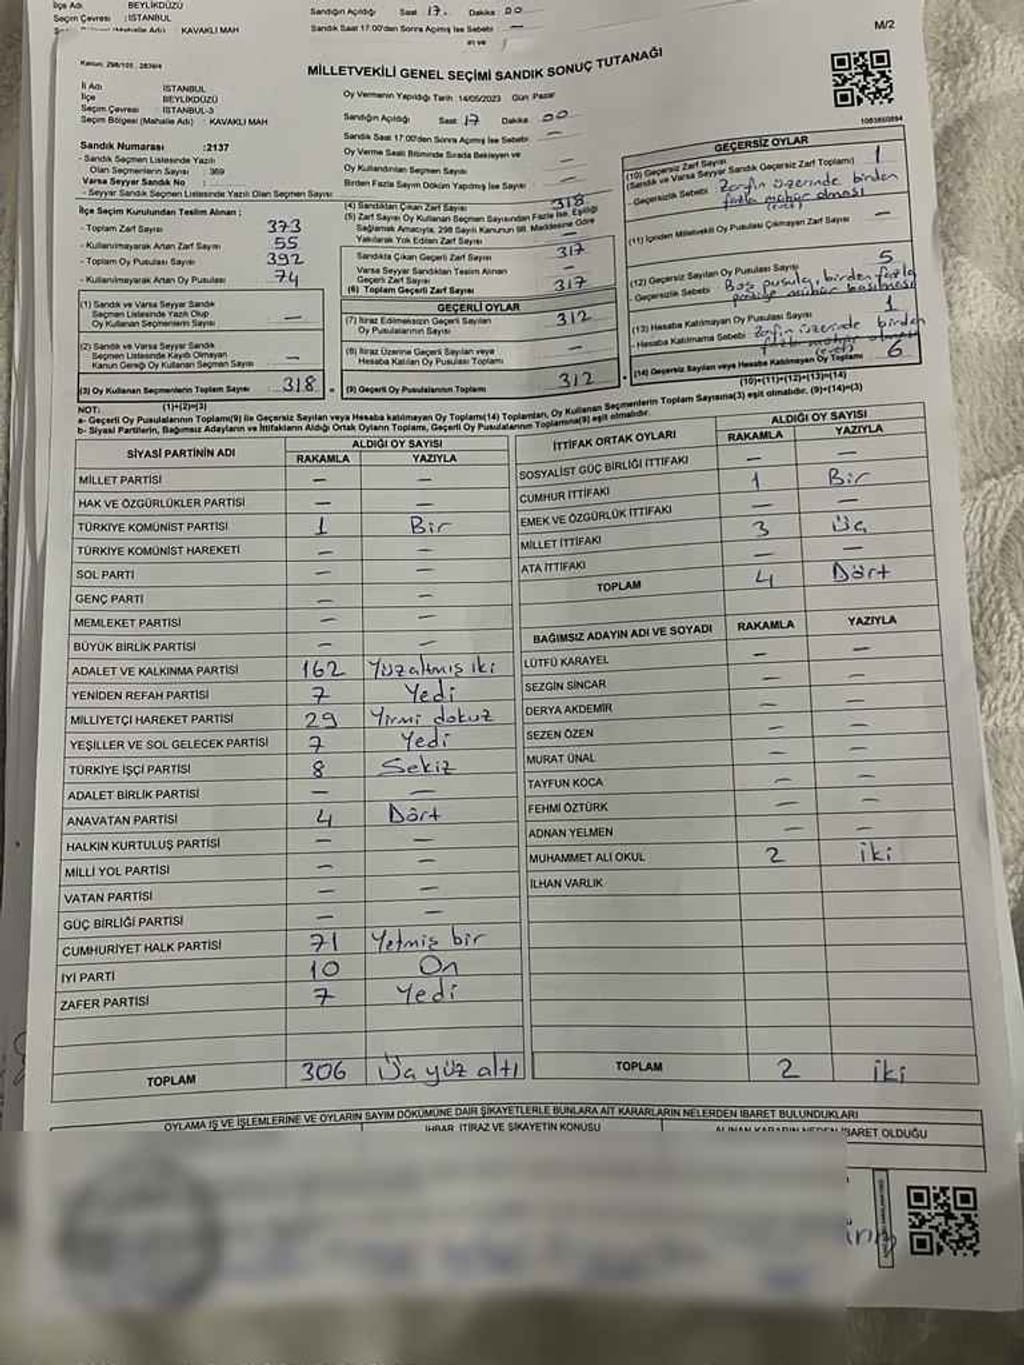 İlçe Adı BEYLİKDÜZÜ
Seçim Çevresi : İSTANBUL
KAVAKLI MAH
Sandığın Açıldığı Saat 17. Dakika 00
Sandık Saat 17:00'den Sonra Açımış İse Sebebi
M/2
Kanun: 298/105, 2839/4
MİLLETVEKİLİ GENEL SEÇİMİ SANDIK SONUÇ TUTANAĞI
1083850894
İl Adı İSTANBUL
İlçe BEYLİKDÜZÜ
Seçim Çevresi : İSTANBUL-3
Seçim Bölgesi (Mahalle Adı) : KAVAKLI MAH
Sandık Numarası :2137
- Sandık Seçmen Listesinde Yazılı
Olan Seçmenlerin Sayısı : 369
Varsa Seyyar Sandık No :
- Seyyar Sandık Seçmen Listesinde Yazılı Olan Seçmen Sayısı
Oy Vermenin Yapıldığı Tarih :14/05/2023 Gün :Pazar
Sandığın Açıldığı Saat 17 Dakika 00
Sandık Saat 17:00'den Sonra Açımış İse Sebebi —
Oy Verme Saati Bitiminde Sırada Bekleyen ve
Oy Kullandırılan Seçmen Sayısı —
Birden Fazla Sayım Döküm Yapılmış İse Sayısı —
İlçe Seçim Kurulundan Teslim Alınan ;
- Toplam Zarf Sayısı 373
- Kullanılmayarak Artan Zarf Sayısı 55
- Toplam Oy Pusulası Sayısı 392
- Kullanılmayarak Artan Oy Pusulası 74
(1) Sandık ve Varsa Seyyar Sandık
Seçmen Listesinde Yazılı Olup
Oy Kullanan Seçmenlerin Sayısı —
(2) Sandık ve Varsa Seyyar Sandık
Seçmen Listesinde Kayıtlı Olmayan
Kanun Gereği Oy Kullanan Seçmen Sayısı —
(3) Oy Kullanan Seçmenlerin Toplam Sayısı 318
(1)+(2)=(3)
(4) Sandıktan Çıkan Zarf Sayısı 318
(5) Zarf Sayısı Oy Kullanan Seçmen Sayısından Fazla İse, Eşitliği
Sağlamak Amacıyla, 298 Sayılı Kanunun 98. Maddesine Göre
Yakılarak Yok Edilen Zarf Sayısı —
Sandıkta Çıkan Geçerli Zarf Sayısı 317
Varsa Seyyar Sandıktan Teslim Alınan
Geçerli Zarf Sayısı —
(6) Toplam Geçerli Zarf Sayısı 317
GEÇERLİ OYLAR
(7) İtiraz Edilmeksizin Geçerli Sayılan
Oy Pusulalarının Sayısı 312
(8) İtiraz Üzerine Geçerli Sayılan veya
Hesaba Katılan Oy Pusulası Toplamı —
(9) Geçerli Oy Pusulalarının Toplamı 312
GEÇERSİZ OYLAR
(10) Geçersiz Zarf Sayısı
(Sandık ve Varsa Seyyar Sandık Geçersiz Zarf Toplamı) 1
- Geçersizlik Sebebi Zarfın üzerinde birden
fazla mühür olması
(evet)
(11) İçinden Milletvekili Oy Pusulası Çıkmayan Zarf Sayısı —
(12) Geçersiz Sayılan Oy Pusulası Sayısı 5
- Geçersizlik Sebebi Boş pusula, birden fazla
partiye mühür basılması
(13) Hesaba Katılmayan Oy Pusulası Sayısı 1
- Hesaba Katılmama Sebebi Zarfın üzerinde birden
fazla mühür olması
(evet)
(14) Geçersiz Sayılan veya Hesaba Katılmayan Oy Toplamı 6
(10)+(11)+(12)+(13)=(14)
NOT:
a- Geçerli Oy Pusulalarının Toplamı(9) ile Geçersiz Sayılan veya Hesaba katılmayan Oy Toplamı(14) Toplamları, Oy Kullanan Seçmenlerin Toplam Sayısına(3) eşit olmalıdır. (9)+(14)=(3)
b- Siyasi Partilerin, Bağımsız Adayların ve İttifakların Aldığı Ortak Oyların Toplamı, Geçerli Oy Pusulalarının Toplamına(9) eşit olmalıdır.
SİYASİ PARTİNİN ADI ALDIĞI OY SAYISI
RAKAMLA YAZIYLA
MİLLET PARTİSİ — —
HAK VE ÖZGÜRLÜKLER PARTİSİ — —
TÜRKİYE KOMÜNİST PARTİSİ 1 Bir
TÜRKİYE KOMÜNİST HAREKETİ — —
SOL PARTİ — —
GENÇ PARTİ — —
MEMLEKET PARTİSİ — —
BÜYÜK BİRLİK PARTİSİ — —
ADALET VE KALKINMA PARTİSİ 162 Yüzaltmış iki
YENİDEN REFAH PARTİSİ 7 Yedi
MİLLİYETÇİ HAREKET PARTİSİ 29 Yirmi dokuz
YEŞİLLER VE SOL GELECEK PARTİSİ 7 Yedi
TÜRKİYE İŞÇİ PARTİSİ 8 Sekiz
ADALET BİRLİK PARTİSİ — —
ANAVATAN PARTİSİ 4 Dört
HALKIN KURTULUŞ PARTİSİ — —
MİLLİ YOL PARTİSİ — —
VATAN PARTİSİ — —
GÜÇ BİRLİĞİ PARTİSİ — —
CUMHURİYET HALK PARTİSİ 71 Yetmiş bir
İYİ PARTİ 10 On
ZAFER PARTİSİ 7 Yedi
TOPLAM 306 Üç yüz altı
İTTİFAK ORTAK OYLARI ALDIĞI OY SAYISI
RAKAMLA YAZIYLA
SOSYALİST GÜÇ BİRLİĞİ İTTİFAKI — —
CUMHUR İTTİFAKI 1 Bir
EMEK VE ÖZGÜRLÜK İTTİFAKI — —
MİLLET İTTİFAKI 3 Üç
ATA İTTİFAKI — —
TOPLAM 4 Dört
BAĞIMSIZ ADAYIN ADI VE SOYADI RAKAMLA YAZIYLA
LÜTFÜ KARAYEL — —
SEZGİN SİNCAR — —
DERYA AKDEMİR — —
SEZEN ÖZEN — —
MURAT ÜNAL — —
TAYFUN KOCA — —
FEHMİ ÖZTÜRK — —
ADNAN YELMEN — —
MUHAMMET ALİ OKUL 2 iki
İLHAN VARLIK
TOPLAM 2 iki
OYLAMA İŞ VE İŞLEMLERİNE VE OYLARIN SAYIM DÖKÜMÜNE DAİR ŞİKAYETLERLE BUNLARA AİT KARARLARIN NELERDEN İBARET BULUNDUKLARI
İHBAR, İTİRAZ VE ŞİKAYETİN KONUSU ALINAN KARARIN NEDEN İBARET OLDUĞU